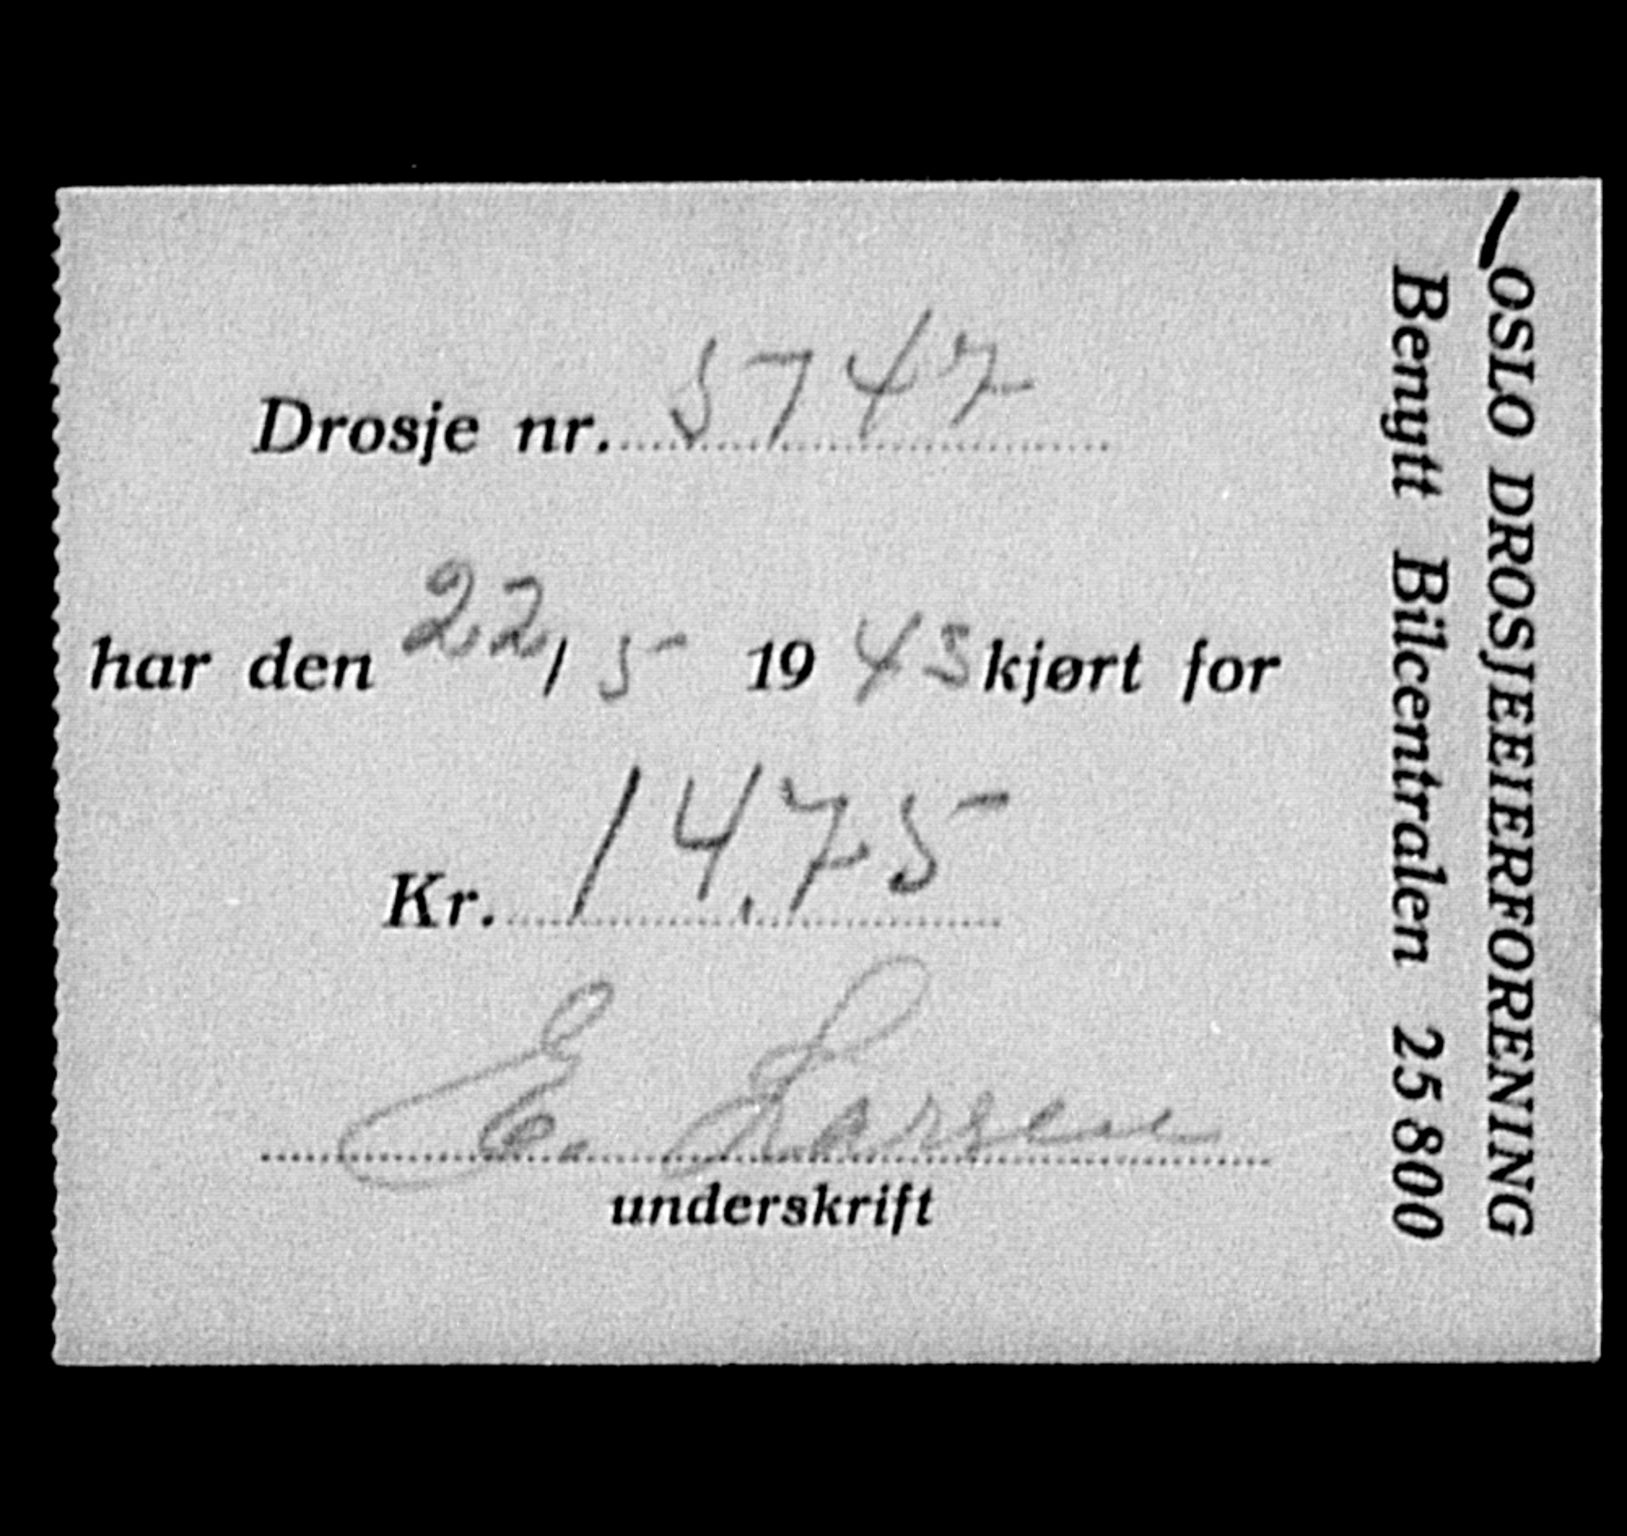 Drosje nr. 5747
har den 22/5 1945 kjørt for
Kr. 14.75
E. Larsen
underskrift
OSLO DROSJEEIERFORENING
Benytt Bilcentralen 25 800